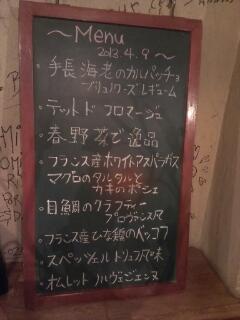 ～Menu
2013.4.9～
・手長海老のカルパッチョ
ブリュノワーズレギューム
・テットドフロマージュ
・春野菜で逸品
・フランス産ホワイトアスパラガス
マグロのタルタルと
カキのポシェ
・目鯛のクラフティー
プロヴァンス風
・フランス産ひな鶏のベッコフ
・スペッツェル トリュフ風味
・オムレット ノルヴェジエンヌ